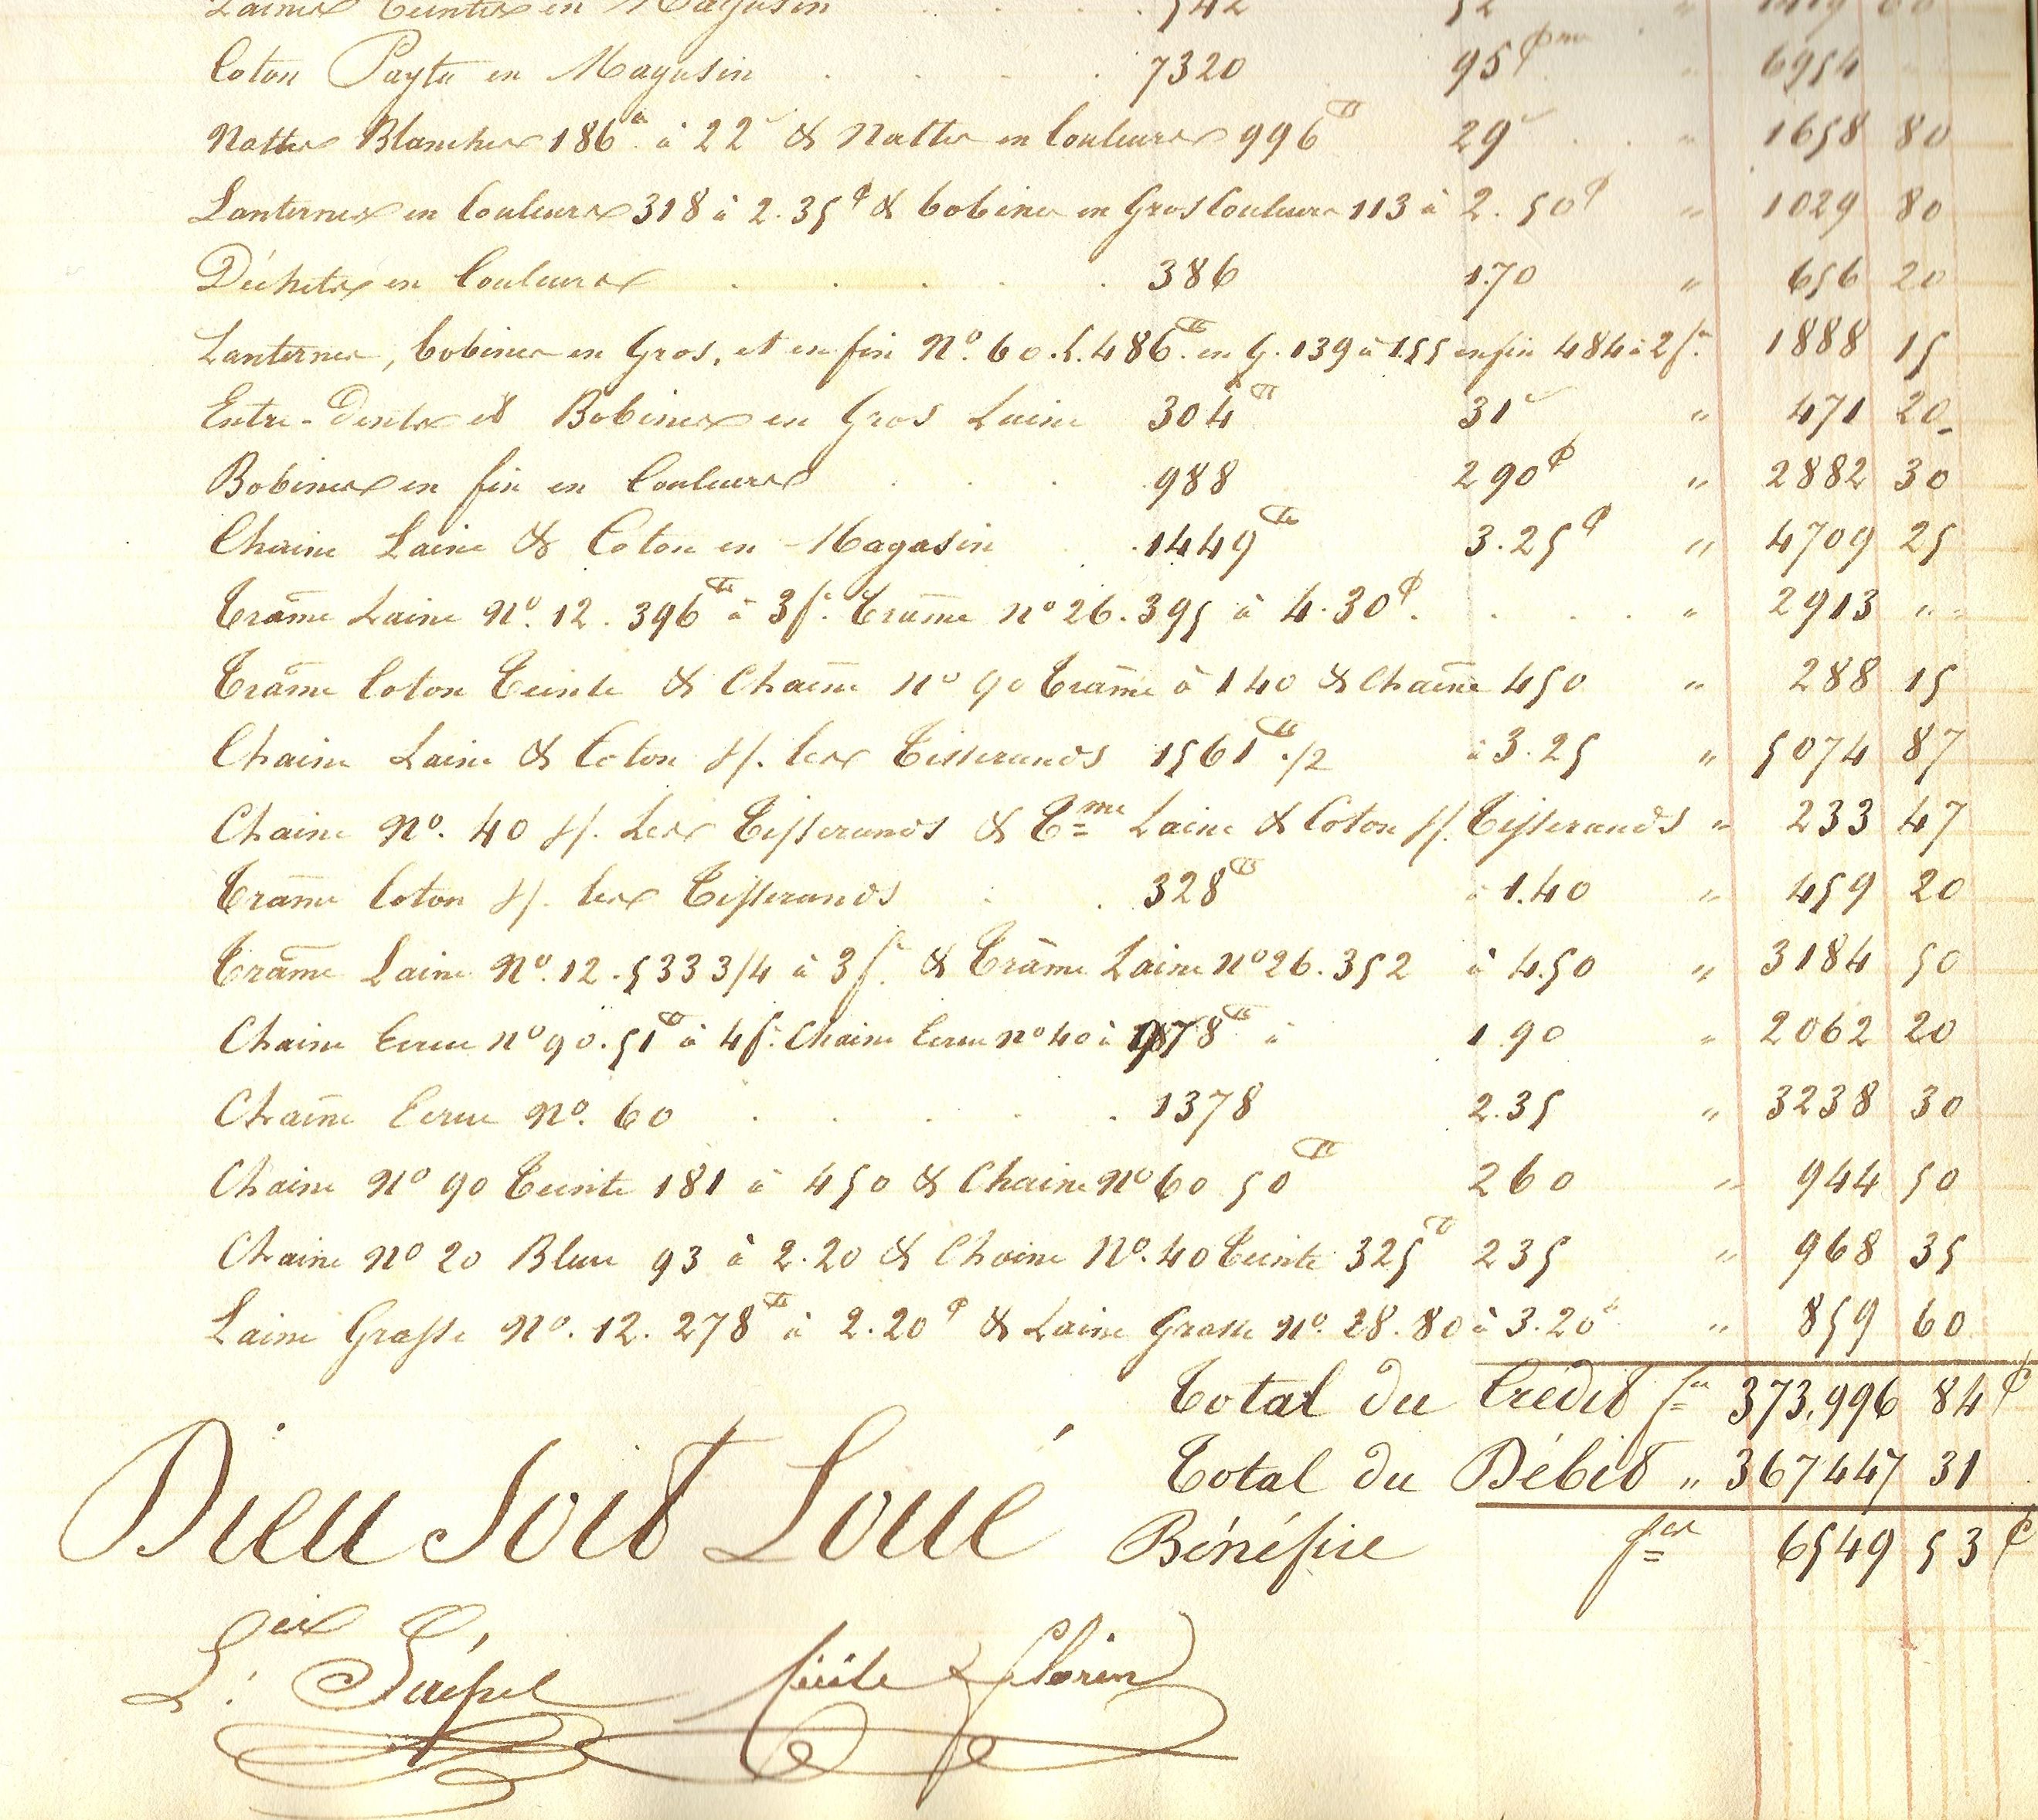 Laines Teintes en Magasin 542 52 " 1419 60
Coton Payta en Magasin 7320 95 " 6954
Nattes Blanches 186 à 22 & Nattes en Couleurs 996 29 " 1658 80
Lanternes en Couleurs 318 à 2.35 & bobines en Gros Couleurs 113 à 2.50 " 1029 80
Déchets en Couleurs 386 1.70 " 656 20
Lanternes, bobines en Gros, et en fin No. 60. L. 486 en G. 139 à 1.55 en fin 484 à 2f. 1888 15
Entre-Dents et Bobines en Gros Laine 304 31 " 471 20
Bobines en fin en Couleurs 988 290 " 2882 30
Chaine Laine & Coton en Magasin 1449 3.25 " 4709 25
Trâme Laine No. 12. 396 à 3f. Trâme no 26. 395 à 4.30 " 2913 "
Trâme Coton Teinte & Chaîne no 90 Trâme à 140 & Chaîne 450 " 288 15
Chaine Laine & Coton s/. les Tisserands 1561 ./2 à 3.25 " 5074 87
Chaine No. 40 s/. les Tisserands & Tme Laine & Coton s/. Tisserands " 233 47
Trâme Coton s/. les Tisserands 328 à 1.40 " 459 20
Trâme Laine No. 12. 533 3/4 à 3f. & Trâme Laine no 26. 352 à 4.50 " 3184 50
Chaine Ecrue no 90. 51 à 4f. Chaine Ecrue no 40 à 978 à 1.90 " 2062 20
Chaîne Ecrue No. 60 1378 2.35 " 3238 30
Chaine No 90 Teinte 181 à 450 & Chaine No 60 50 260 " 944 50
Chaine No 20 Bleue 93 à 2.20 & Chaine No. 40 Teinte 325 235 " 968 35
Laine Grasse No. 12. 278 à 2.20 & Laine Grasse No. 28. 80 à 3.20 " 859 60
Total du Crédit fs 373,996 84
Total du Débit " 367447 31
Dieu Soit Loué
Bénéfice fcs 6549 53